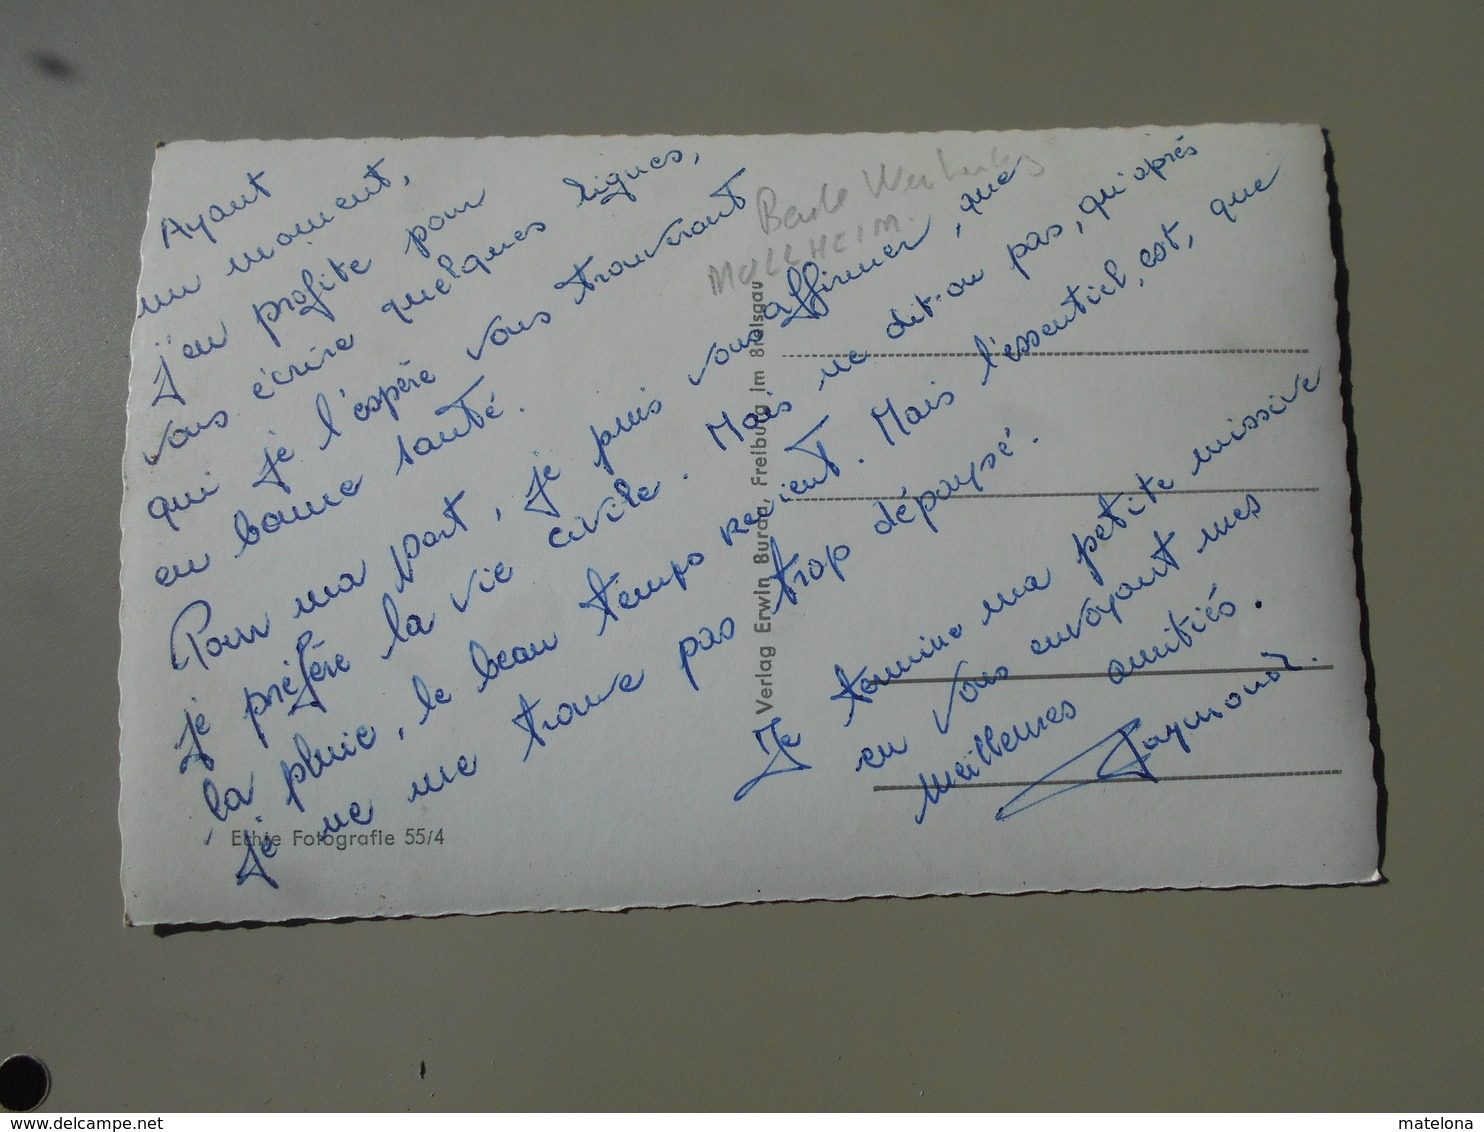 Ayant
un moment,
j'en profite pour
vous écrire quelques lignes,
qui je l'espère vous trouveront
en bonne santé.
Pour ma part, je puis vous affirmer, que
je préfère la vie civile. Mais ne dit-on pas, qu'après
la pluie, le beau temps revient. Mais l'essentiel, est, que
je ne me trouve pas trop dépaysé.
Je termine ma petite missive
en vous envoyant mes
meilleures amitiés.
Raymond.
MULLHEIM
Verlag Erwin Burda, Freiburg im Breisgau
Echte Fotografie 55/4
delcampe.net
matelona